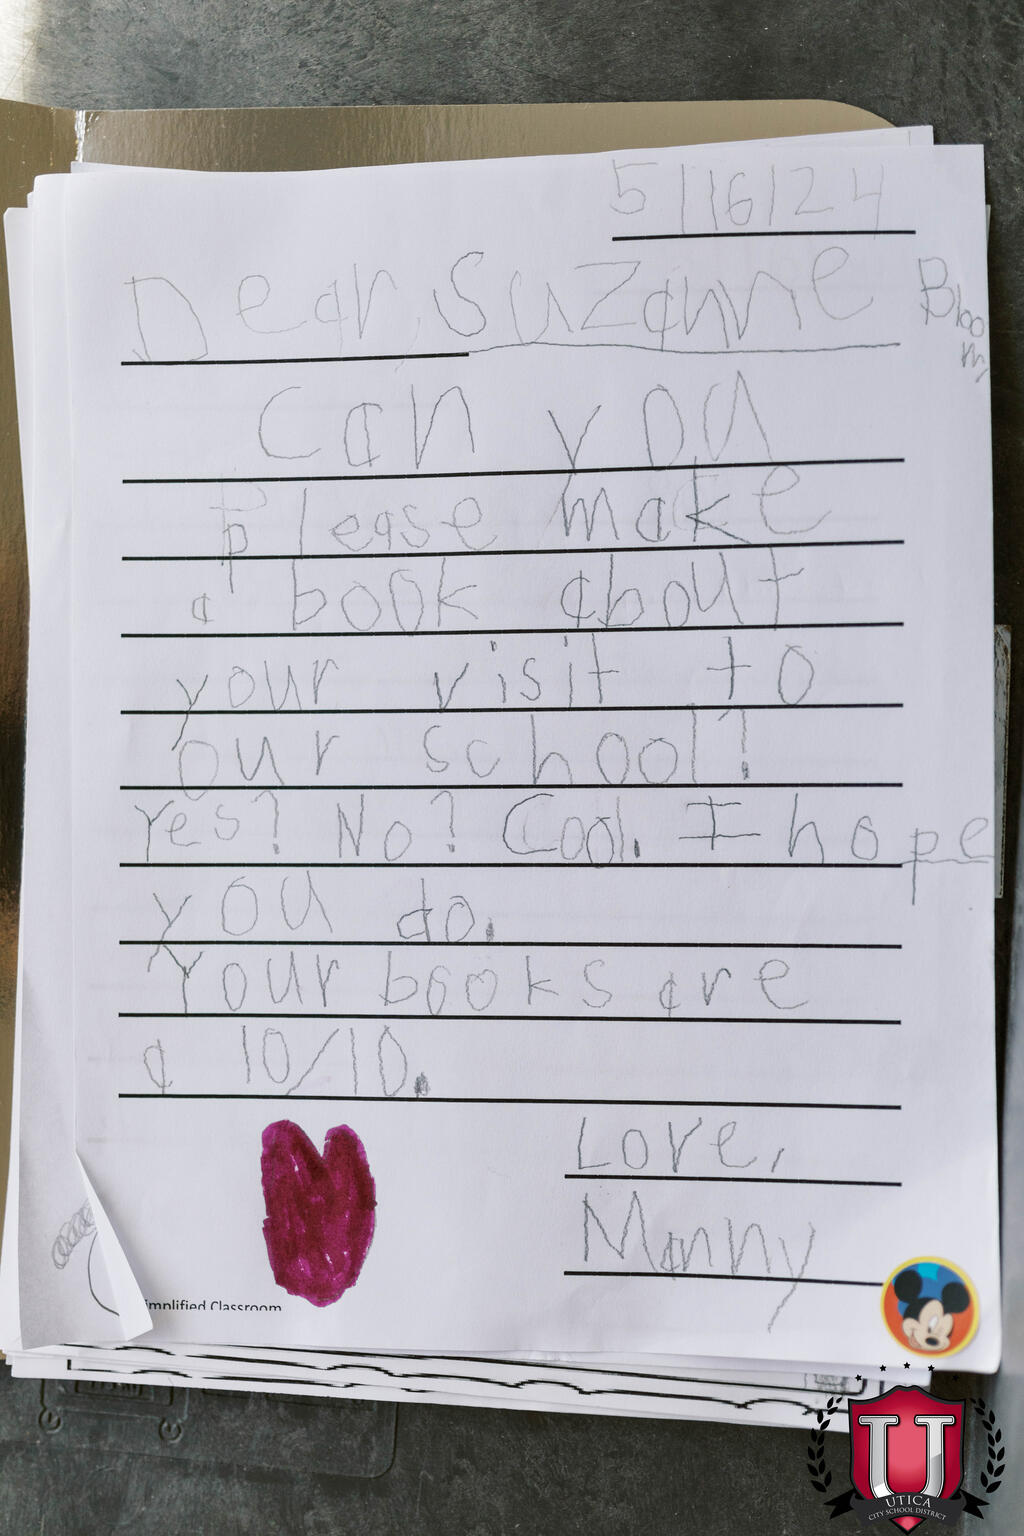 5/16/24
Dear, Suzanne Bloom,
Can you
please make
a book about
your visit to
our school?
Yes? No? Cool. I hope
you do.
Your books are
a 10/10.
Love,
Manny
implified Classroom
U
UTICA
CITY SCHOOL DISTRICT